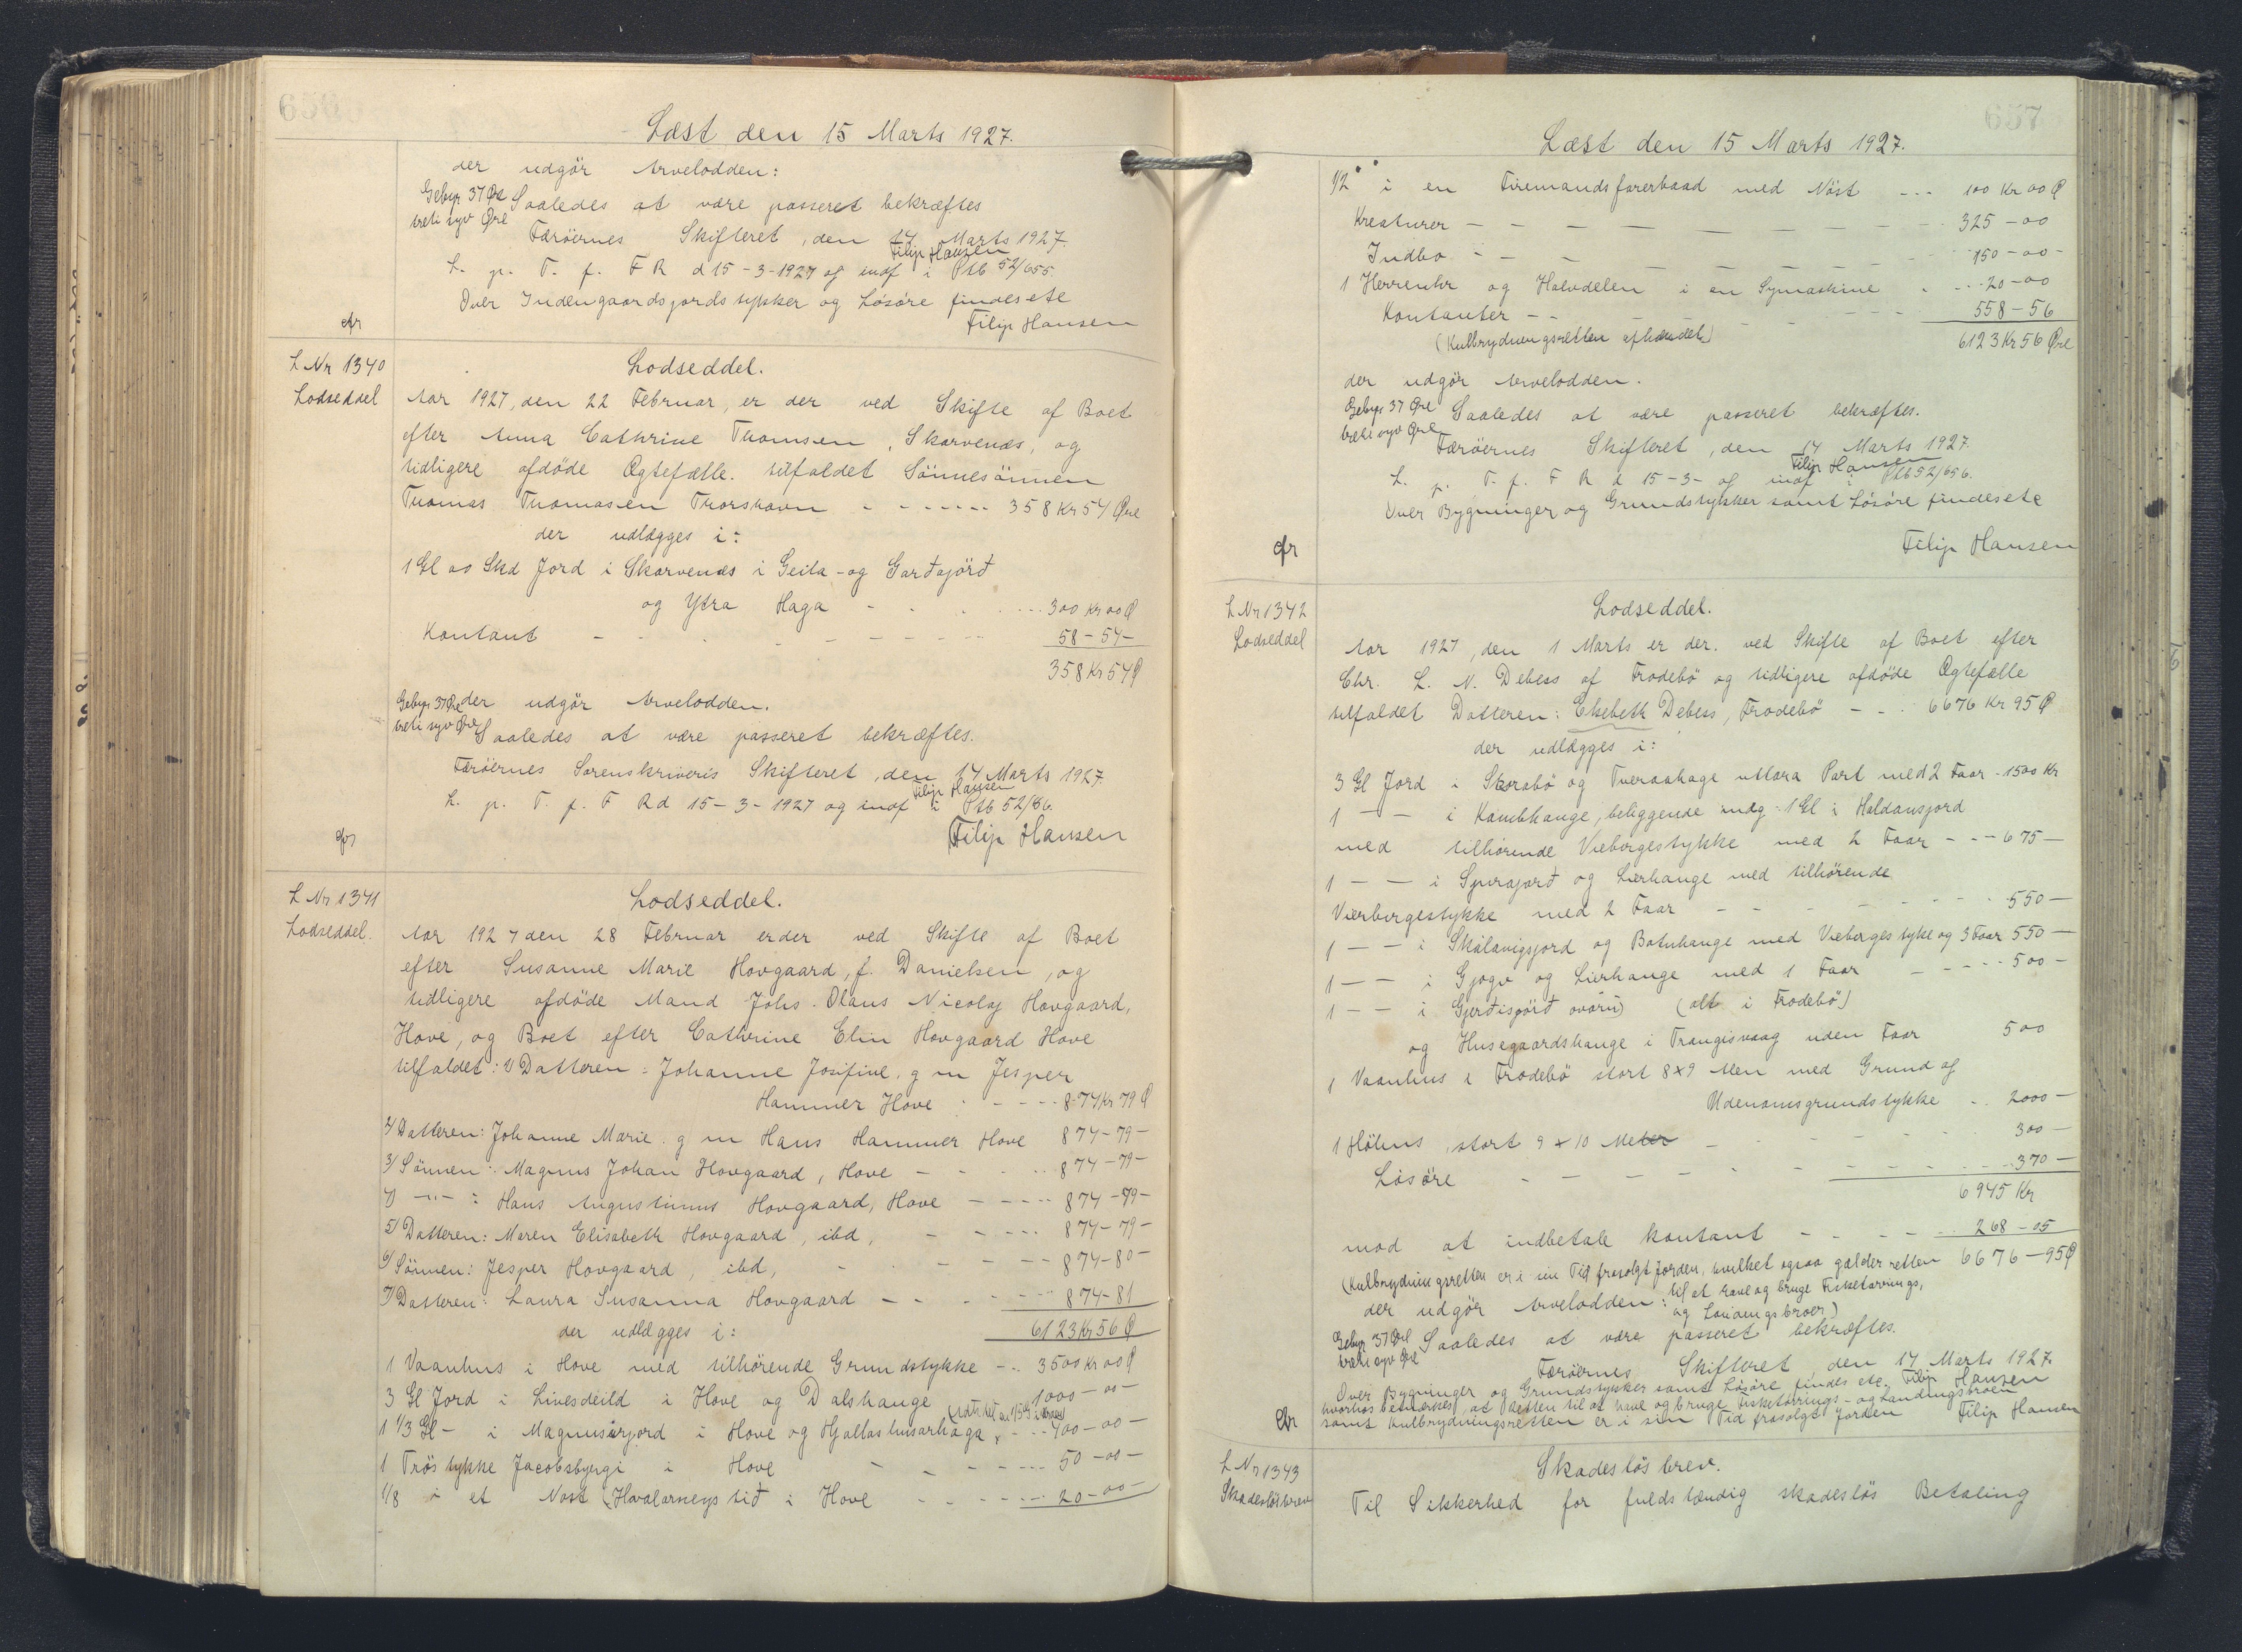 656
Læst den 15 Marts 1927.
der udgör Arvelodden:
Gebyr 37 Øre
treti syv Øre
Saaledes at være passeret bekræftes
Færöernes Skifteret, den 14 Marts 1927.
Filip Hansen
L. p. T. f. F R d 15-3-1927 og indf i Ptb 52/655.
Over Indengaardsjordstykker og Lösöre findes etc
Filip Hansen
L Nr 1340
Lodseddel
Lodseddel.
Aar 1927, den 22 Februar, er der ved Skifte af Boet
efter Anna Cathrine Thomsen, Skarvenæs, og
tidligere afdöde Ægtefælle. tilfaldet Sönnesönnen
Thomas Thomasen Thorshavn - - - - - - 358 Kr 54 Øre
der udlægges i:
1 Gl 00 Skd Jord i Skarvenæs i Geita- og Garðajörð
og Ytra Haga - - - 300 Kr 00 Ø
Kontant - - - - - - 58-54-
358 Kr 54 Ø
Gebyr 37 Øre
treti syv Øre
der udgör Arvelodden.
Saaledes at være passeret bekræftes.
Færöernes Sorenskriveris Skifteret, den 14 Marts 1927
Filip Hansen
L. p. T. f. F R d 15-3-1927 og indf i Ptb 52/656.
Filip Hansen
L Nr 1341
Lodseddel.
Lodseddel.
Aar 1927 den 28 Februar er der ved Skifte af Boet
efter Susanne Marie Hovgaard, f. Danielsen, og
tidligere afdöde Mand Johs. Olaus Nicolaj Hovgaard,
Hove, og Boet efter Cathrine Elin Hovgaard Hove
tilfaldet: 1) Datteren: Johanne Josifine, g m Jesper
Hammer Hove - - - - 874 Kr 79 Ø
2) Datteren: Johanne Marie g m Hans Hammer Hove 874-79-
3) Sönnen: Magnus Johan Hovgaard, Hove - - - 874-79-
4) -"- : Hans Augustinus Hovgaard, Hove - - - - 874-79-
5) Datteren: Maren Elisabeth Hovgaard, ibd, - - - - 874-79-
6) Sönnen: Jesper Hovgaard, ibd, - - - - 874-80-
7) Datteren: Laura Susanna Hovgaard - - - - 874-81
der udlægges i: 6123 Kr 56 Ø
1 Vaanhus i Hove med tilhörende Grundstykke - - 3500 Kr 00 Ø
3 Gl Jord i Livesdeild i Hove og Dalshauge 1000-00-
1 1/3 Gl - i Magnusarjord i Hove og Hjallashusarhaga, - - 400-00-
1 Tröstykke Jacobsbyrgi i Hove - - - - - 50-00-
1/8 i et Nöst (Hvalarneystið i Hove - - - - - 20-00-
657
Læst den 15 Marts 1927.
1/2 i en Firemandsfarerbaad med Nöst - - - 100 Kr 00 Ø
Kreaturer - - - - - - - - 325-00
Indbo - - - - - - - 150-00-
1 Herreuhr og Halvdelen i en Symaskine - - - 20-00
Kontanter - - - - - - - 558-56
(Kulbrydningsretten afhændet) 6123 Kr 56 Øre
der udgör Arvelodden.
Gebyr 37 Øre
treti syv Øre
Saaledes at være passeret bekræftes.
Færöernes Skifteret, den 14 Marts 1927.
Filip Hansen
L. p. T. f. F R d 15-3- og indf i Ptb 52/656.
Over Bygninger og Grundstykker samt Lösöre findes etc
Filip Hansen
L Nr 1342
Lodseddel
Lodseddel.
Aar 1927, den 1 Marts er der ved Skifte af Boet efter
Chr. L. N. Debess af Frodebö og tidligere afdöde Ægtefælle
tilfaldet Datteren: Elsebeth Debess, Frodebö - - - 6676 Kr 95 Ø
der udlægges i:
3 Gl Jord i Skorabö og Tveraahage uttara Part med 2 Faar - 1500 Kr
1 - - i Kambhauge, beliggende indg 1 Gl i Haldansjord
med tilhörende Viebørgestykke med 2 Faar - - - 675-
1 - - i Spurajorð og Lierhauge med tilhörende
Vierborgestykke med 2 Faar - - - - - - 550-
1 - - i Skálavigsjord og Botnhauge med Vieborgestyke og 3 Faar 550-
1 - - i Gjogv og Lierhauge med 1 Faar - - - - 500-
1 - - i Gjerðisjörð ovaru) (alt i Frodebö)
og Husegaardshauge i Trangisvaag uden Faar 500
1 Vaanhus i Frodebö stort 8x9 Alen med Grund og
Udenomsgrundstykke - - 2000-
1 Höhus, stort 9 x 10 Meter - - - - - 300-
Lösöre - - - - - - - - 370-
6945 Kr
mod at indbetale kontant - - - - 268-05
(Kulbrydningsretten er i sin Tid frasolgt Jorden, hvilket ogsaa gælder retten 6676-95 Ø
til at have og bruge Fisketörrings,
der udgör Arvelodden: og Landingsbroer)
Gebyr 37 Øre
treti syv Øre
Saaledes at være passeret bekræftes.
Færöernes Skifteret den 14 Marts 1927.
Filip Hansen
Over Bygninger og Grundstykker samt Lösöre findes etc.
hvorhos bemærkes, at Retten til at have og bruge Fisketörrings- og Landingsbroen
samt Kulbrydningsretten er i sin Tid frasolgt Jorden
Filip Hansen
L Nr 1343
Skadeslösbrev
Skadeslösbrev.
Til Sikkerhed for fuldstændig skadeslös Betaling